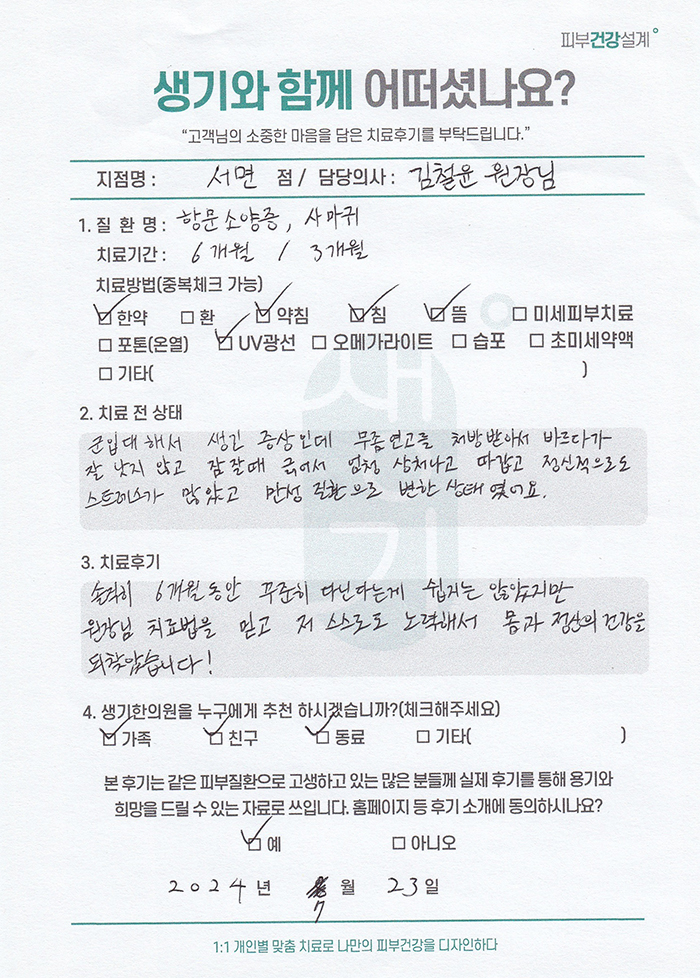 피부건강설계
생기와 함께 어떠셨나요?
“고객님의 소중한 마음을 담은 치료후기를 부탁드립니다.”
지점명 : 서면 점 / 담당의사 : 김철윤 원장님
1. 질 환 명 : 항문소양증, 사마귀
치료기간 : 6개월 / 3개월
치료방법(중복체크 가능)
☑ 한약 □ 환 ☑ 약침 ☑ 침 ☑ 뜸 □ 미세피부치료
□ 포톤(온열) ☑ UV광선 □ 오메가라이트 □ 습포 □ 초미세약액
□ 기타( )
2. 치료 전 상태
군입대 해서 생긴 증상인데 무좀연고를 처방받아서 바르다가
잘 낫지 않고 잠잘때 긁어서 엄청 상처나고 따갑고 정신적으로도
스트레스가 많았고 만성 질환으로 변한 상태 였어요.
3. 치료후기
솔직히 6개월동안 꾸준히 다닌다는게 쉽지는 않았지만
원장님 치료법을 믿고 저 스스로도 노력해서 몸과 정신의 건강을
되찾았습니다!
4. 생기한의원을 누구에게 추천 하시겠습니까?(체크해주세요)
☑ 가족 ☑ 친구 ☑ 동료 □ 기타( )
본 후기는 같은 피부질환으로 고생하고 있는 많은 분들께 실제 후기를 통해 용기와
희망을 드릴 수 있는 자료로 쓰입니다. 홈페이지 등 후기 소개에 동의하시나요?
☑ 예 □ 아니오
2024년 7월 23일
1:1 개인별 맞춤 치료로 나만의 피부건강을 디자인하다
생기